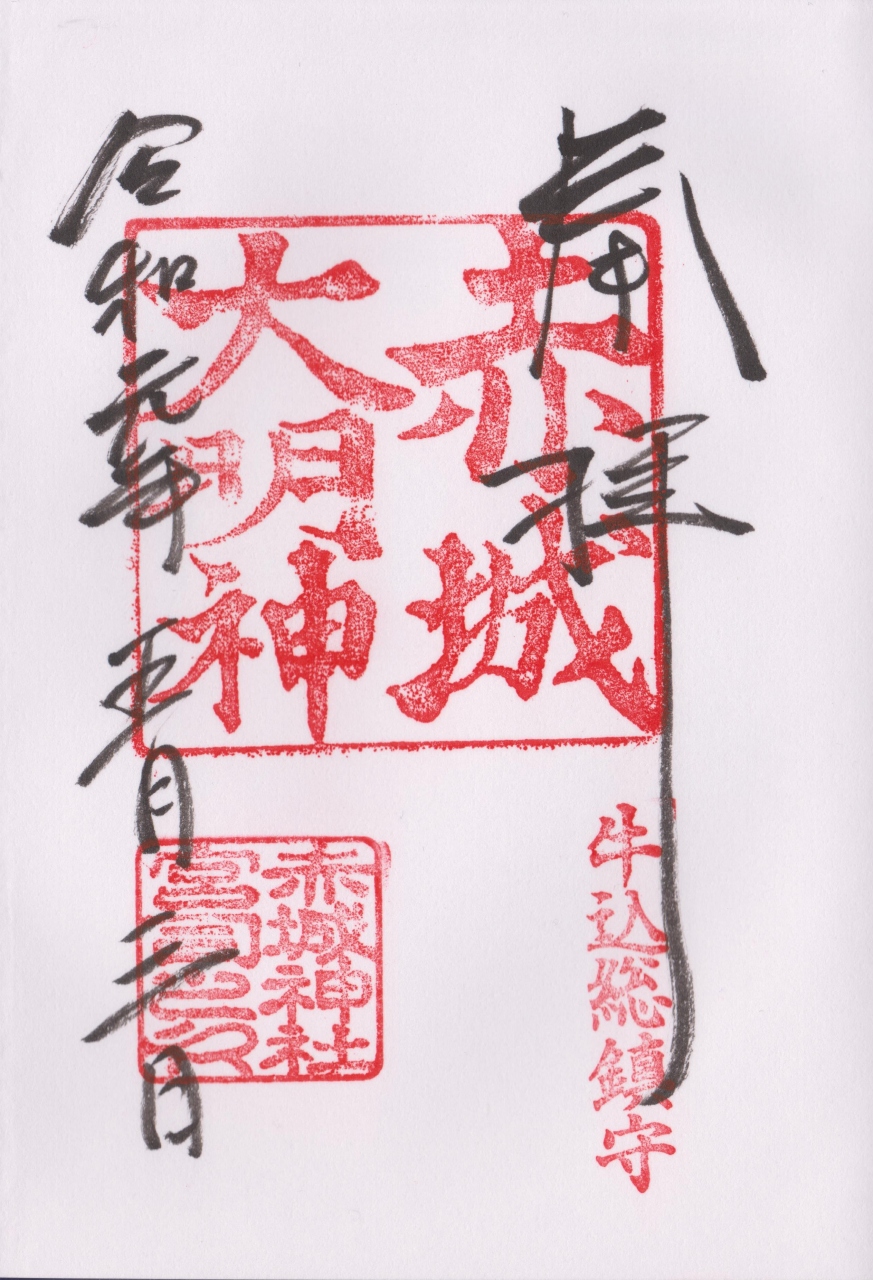 奉拝
赤城
大明神
牛込総鎮守
赤城神社
宮司之印
令和元年五月三日